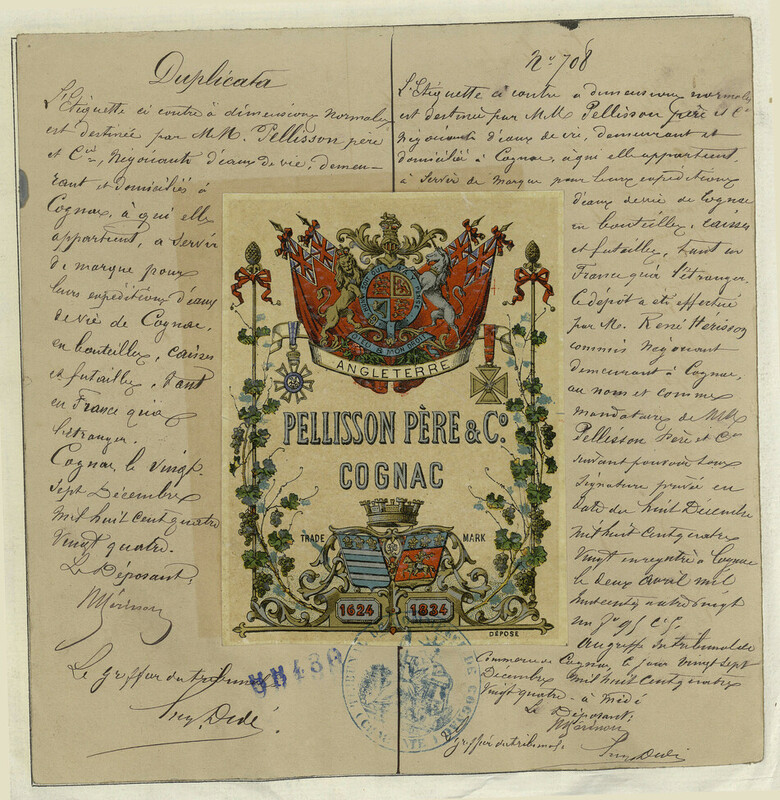 Duplicata
L'Etiquette ci contre à dimensions normales
est destinée par MM. Pellisson père
et Cie, Négociants d'eaux de vie, demeu-
rant et domiciliés à
Cognac, à qui elle
appartient, à servir
de marque pour
leurs expéditions d'eaux
de vie de Cognac,
en bouteilles, caisses
et futailles, tant
en France qu'à
l'étranger.
Cognac le vingt
sept Décembre
mil huit cent quatre
vingt quatre.
Le Déposant,
Le greffier du tribunal
No 708
L'Etiquette ci contre à dimensions normales
est destinée par MM Pellisson père et Cie
Négociants d'eaux de vie, demeurant et
domiciliés à Cognac, à qui elle appartient,
à servir de marque pour leurs expéditions
d'eaux de vie de Cognac
en bouteilles, caisses
et futailles, tant en
France qu'à l'étranger.
Le dépôt a été effectué
par M. René Hérisson
commis Négociant
demeurant à Cognac,
au nom et comme
mandataire de MM
Pellisson Père et Cie
suivant pouvoir sous
signature privée en
date du huit Décembre
mil huit cent quatre
vingt enregistré à Cognac
le deux avril mil
huit cent quatre vingt
un
au greffe du tribunal de
Commerce de Cognac, le jour vingt sept
Décembre mil huit cent quatre
vingt quatre - à
Le Déposant,
greffier du tribunal
HONI SOIT QUI MAL Y PENSE
DIEU ET MON DROIT
ANGLETERRE
PELLISSON PÈRE & Co
COGNAC
TRADE MARK
1624 1834
DÉPOSÉ